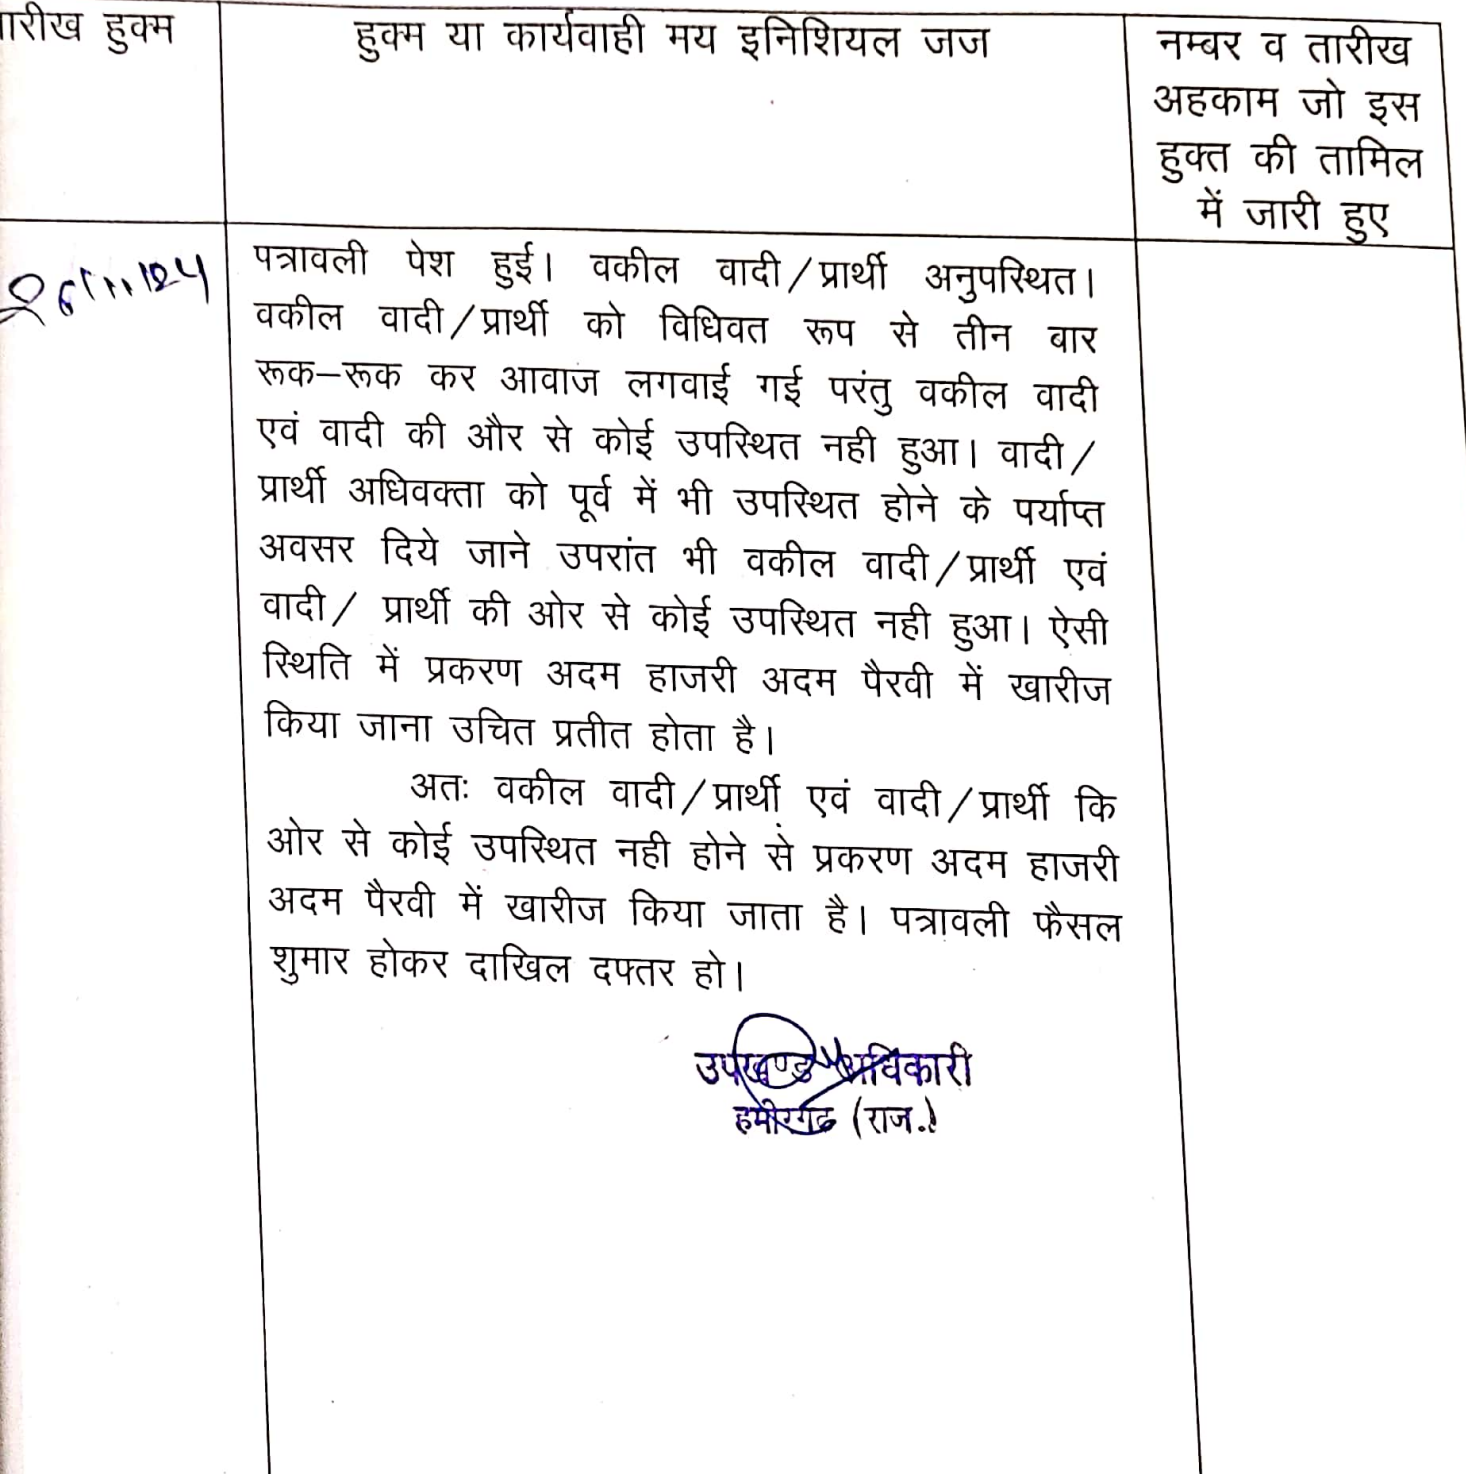 तारीख हुक्म
हुक्म या कार्यवाही मय इनिशियल जज
नम्बर व तारीख
अहकाम जो इस
हुक्त की तामिल
में जारी हुए
26/11/24
पत्रावली पेश हुई। वकील वादी/प्रार्थी अनुपस्थित।
वकील वादी/प्रार्थी को विधिवत रूप से तीन बार
रूक–रूक कर आवाज लगवाई गई परंतु वकील वादी
एवं वादी की और से कोई उपस्थित नही हुआ। वादी/
प्रार्थी अधिवक्ता को पूर्व में भी उपस्थित होने के पर्याप्त
अवसर दिये जाने उपरांत भी वकील वादी/प्रार्थी एवं
वादी/ प्रार्थी की ओर से कोई उपस्थित नही हुआ। ऐसी
स्थिति में प्रकरण अदम हाजरी अदम पैरवी में खारीज
किया जाना उचित प्रतीत होता है।
अतः वकील वादी/प्रार्थी एवं वादी/प्रार्थी कि
ओर से कोई उपस्थित नही होने से प्रकरण अदम हाजरी
अदम पैरवी में खारीज किया जाता है। पत्रावली फैसल
शुमार होकर दाखिल दफ्तर हो।
उपखण्ड अधिकारी
हमीरगढ (राज.)